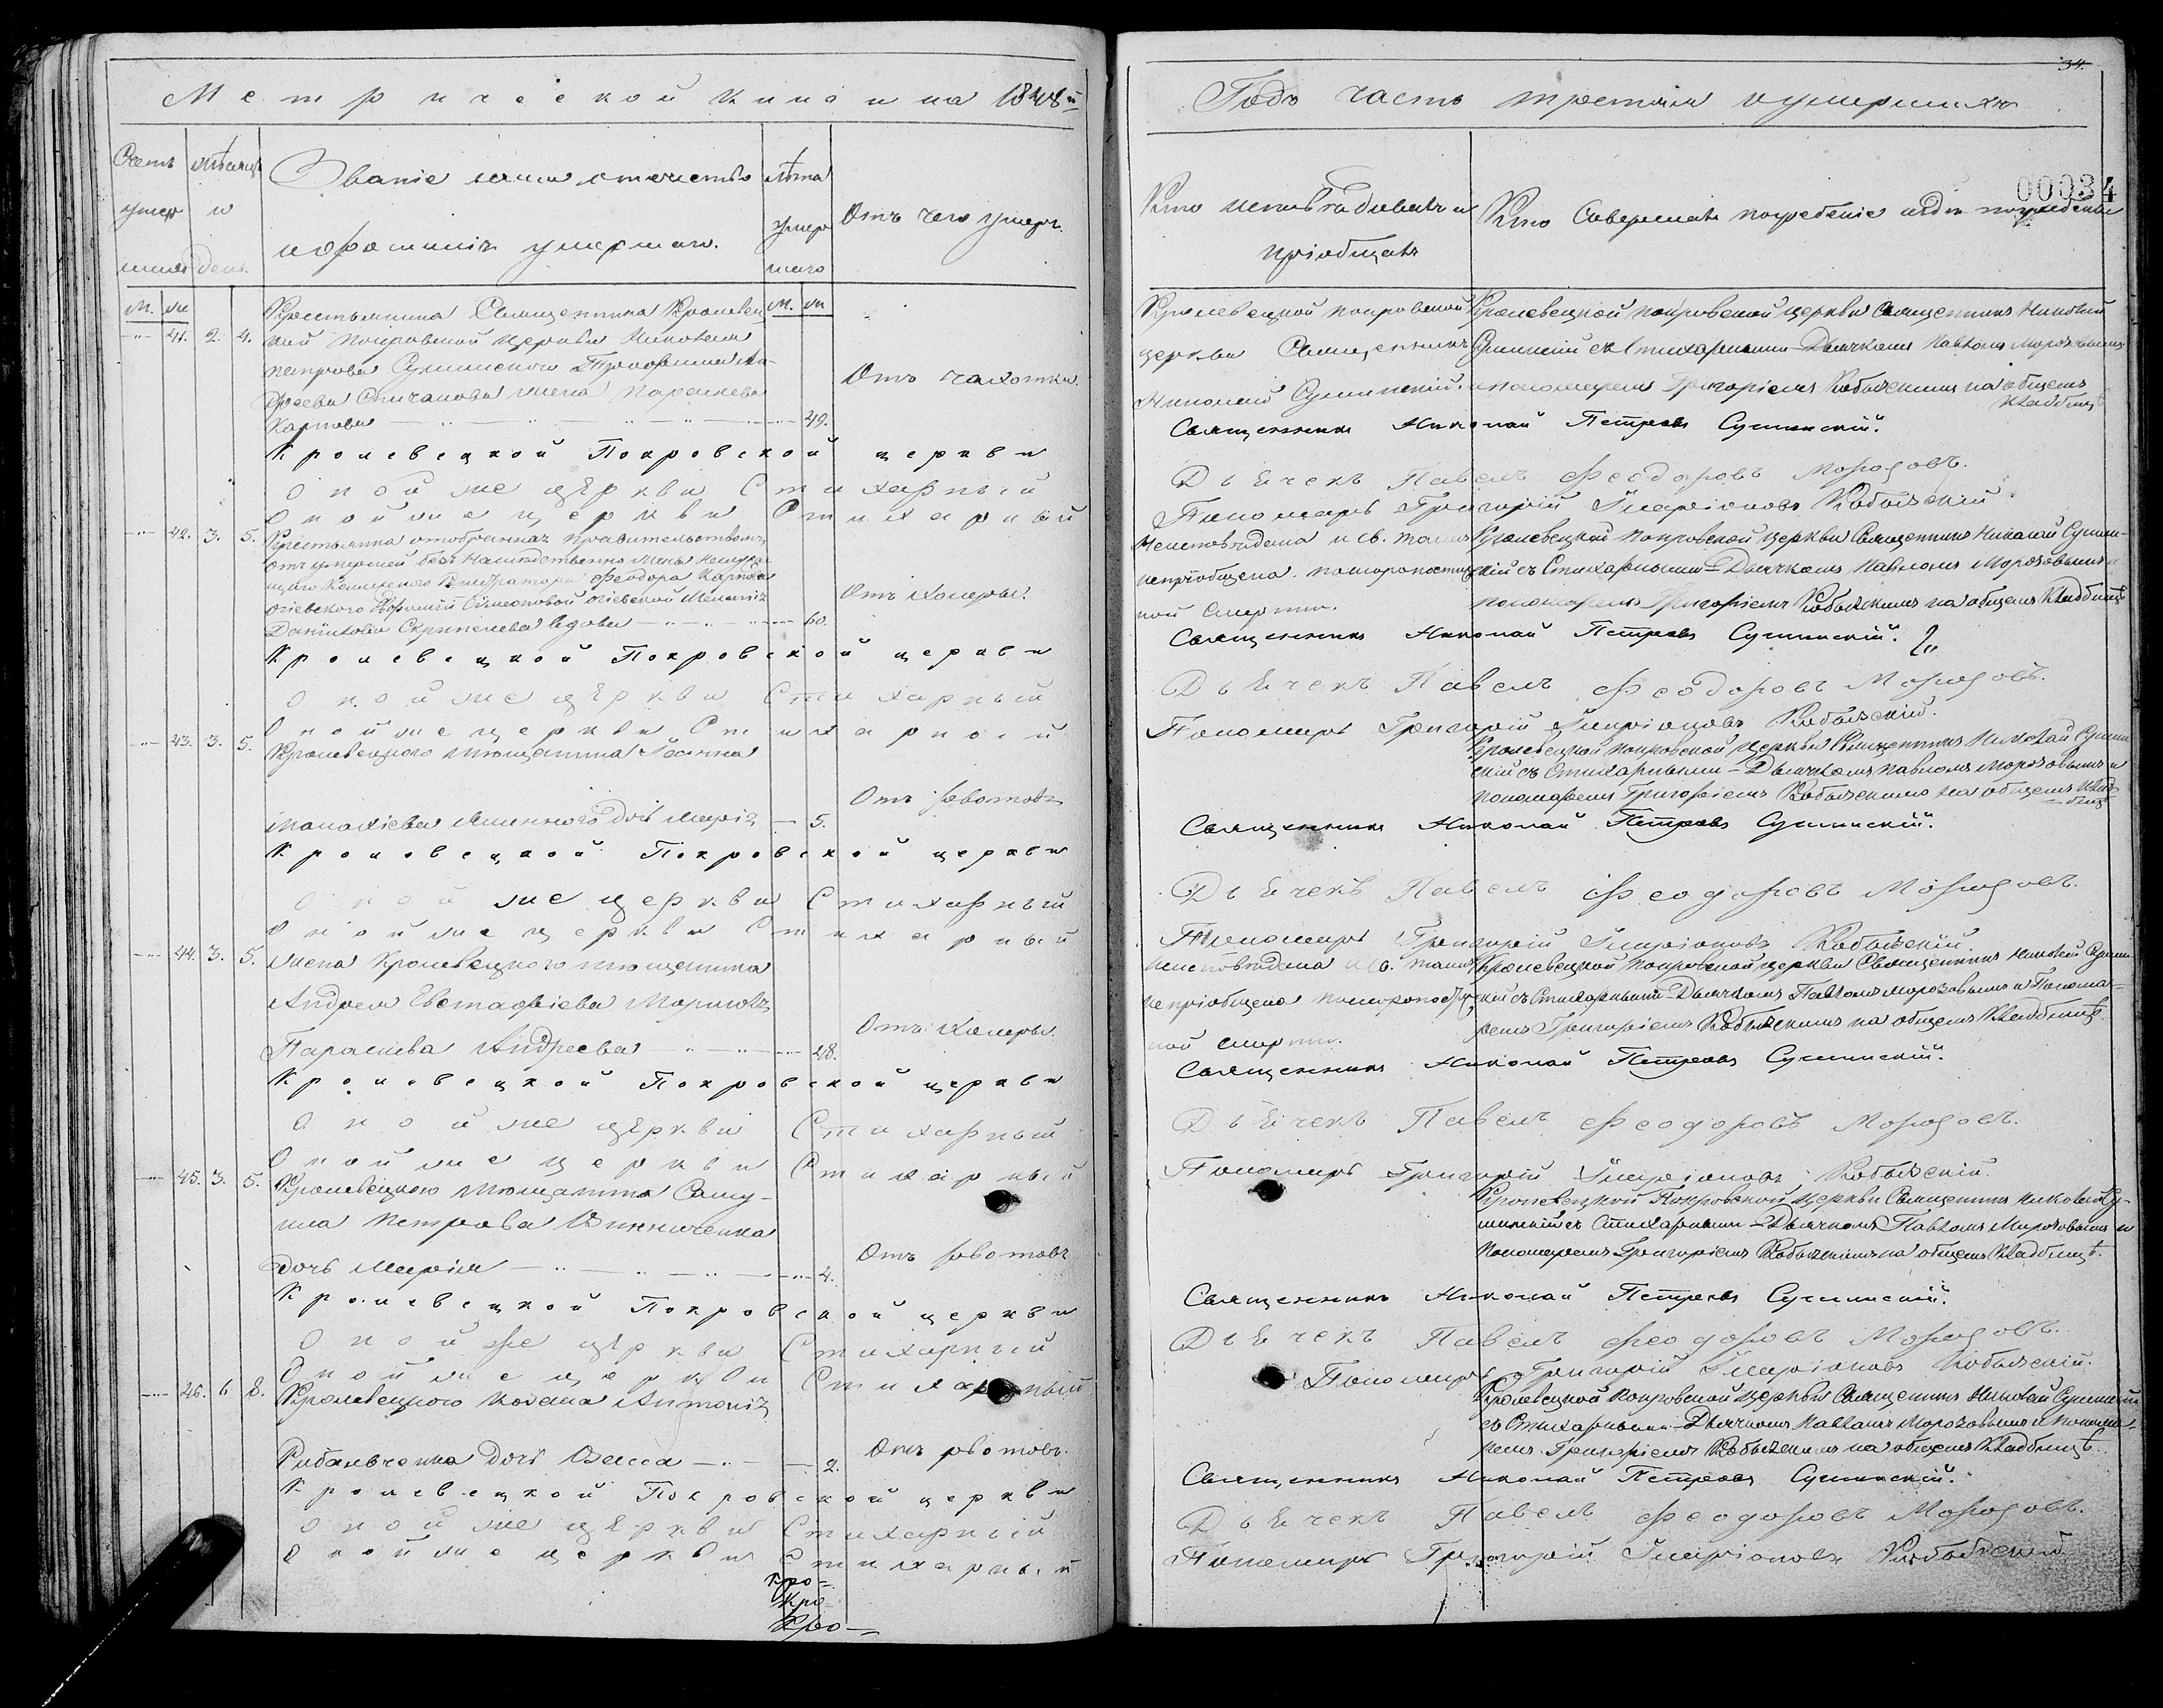 Метрической книги на 1848й
Счетъ умершихъ
мѣсяцъ и день.
Званіе имя отечество
и фамилія умершаго.
лѣта умершаго
Отъ чего умеръ.
м. ж.
м. ж.
41. 2. 4. Крестьянина Священника Кролевец
кой Покровской церкви Николая
Петрова Сушинского Трофима
жена Параскева
Карпова 49.
Отъ чахотки.
Кролевецкой Покровской церкви
Оной же церкви Стихарный
Оной же церкви Стихарный
42. 3. 5. Крестьянка отобранная правительствомъ
отъ умершей без
Феодора Карпова
Огіевского
Данилова вдова 60.
Отъ холеры.
Кролевецкой Покровской церкви
Оной же церкви Стихарный
Оной же церкви Стихарный
43. 3. 5. Кролевецкого мѣщанина
дочь Марія 5.
Отъ
Кролевецкой Покровской церкви
Оной же церкви Стихарный
Оной же церкви Стихарный
44. 3. 5. жена Кролевецкого мѣщанина
Андрея Евстафіева
Параскева Андреева 28.
Отъ холеры.
Кролевецкой Покровской церкви
Оной же церкви Стихарный
Оной же церкви Стихарный
45. 3. 5. Кролевецкого мѣщанина Саму-
ила Петрова Винниченка
дочь Марія
Отъ
Кролевецкой Покровской церкви
Оной же церкви Стихарный
Оной же церкви Стихарный
46. 6 8. Кролевецкого козака Антонія
Рибальченка дочь 2.
Отъ
Кролевецкой Покровской церкви
Оной же церкви Стихарный
Оной же церкви Стихарный
Кро-
Кро-
Кро-
34.
Годъ часть третія о умершихъ
00034
Кто исповѣдывалъ и
пріобщалъ
Кто Совершалъ погребеніе и гдѣ погребены
Кролевецкой Покровской
церкви Священникъ
Николай Сушинскій.
Кролевецкой Покровской церкви Священникъ Николай
Сушинскій съ Стихарными Дьячкомъ Павломъ Морозовымъ
и пономаремъ Григоріемъ Кобыжскимъ на общемъ
кладбищѣ
Священникъ Николай Петровъ Сушинскій.
Дьячекъ Павелъ Феодоровъ Морозовъ.
Пономарь Григорій Иларіоновъ Кобыжскій.
Неисповѣдана и св. таинъ
непріобщена по скоропостиж
ной смерти.
Кролевецкой Покровской церкви Священникъ Николай Сушин-
скій съ Стихарными Дьячкомъ Павломъ Морозовымъ и
пономаремъ Григоріемъ Кобыжскимъ на общемъ кладбищѣ
Священникъ Николай Петровъ Сушинскій.
Дьячекъ Павелъ Феодоровъ Морозовъ.
Пономарь Григорій Иларіоновъ Кобыжскій.
Кролевецкой Покровской церкви Священникъ Николай Сушин
скій съ Стихарными Дьячкомъ Павломъ Морозовымъ и
пономаремъ Григоріемъ Кобыжскимъ на общемъ клад-
бищѣ
Священникъ Николай Петровъ Сушинскій.
Дьячекъ Павелъ Феодоровъ Морозовъ.
Пономарь Григорій Иларіоновъ Кобыжскій.
Неисповѣдана и св. таинъ
непріобщена по скоропостиж
ной смерти.
Кролевецкой Покровской церкви Священникъ Николай Сушин
скій съ Стихарными Дьячкомъ Павломъ Морозовымъ и Понома-
ремъ Григоріемъ Кобыжскимъ на общемъ кладбищѣ.
Священникъ Николай Петровъ Сушинскій.
Дьячекъ Павелъ Феодоровъ Морозовъ.
Пономарь Григорій Иларіоновъ Кобыжскій.
Кролевецкой Покровской церкви Священникъ Николай Су-
шинскій съ Стихарными Дьячкомъ Павломъ Морозовымъ и
пономаремъ Григоріемъ Кобыжскимъ на общемъ кладбищѣ.
Священникъ Николай Петровъ Сушинскій.
Дьячекъ Павелъ Феодоровъ Морозовъ.
Пономарь Григорій Иларіоновъ Кобыжскій.
Кролевецкой Покровской церкви Священникъ Николай Сушинскій
съ Стихарными Дьячкомъ Павломъ Морозовымъ и понома-
ремъ Григоріемъ Кобыжскимъ на общемъ кладбищѣ.
Священникъ Николай Петровъ Сушинскій.
Дьячекъ Павелъ Феодоровъ Морозовъ.
Пономарь Григорій Иларіоновъ Кобыжскій